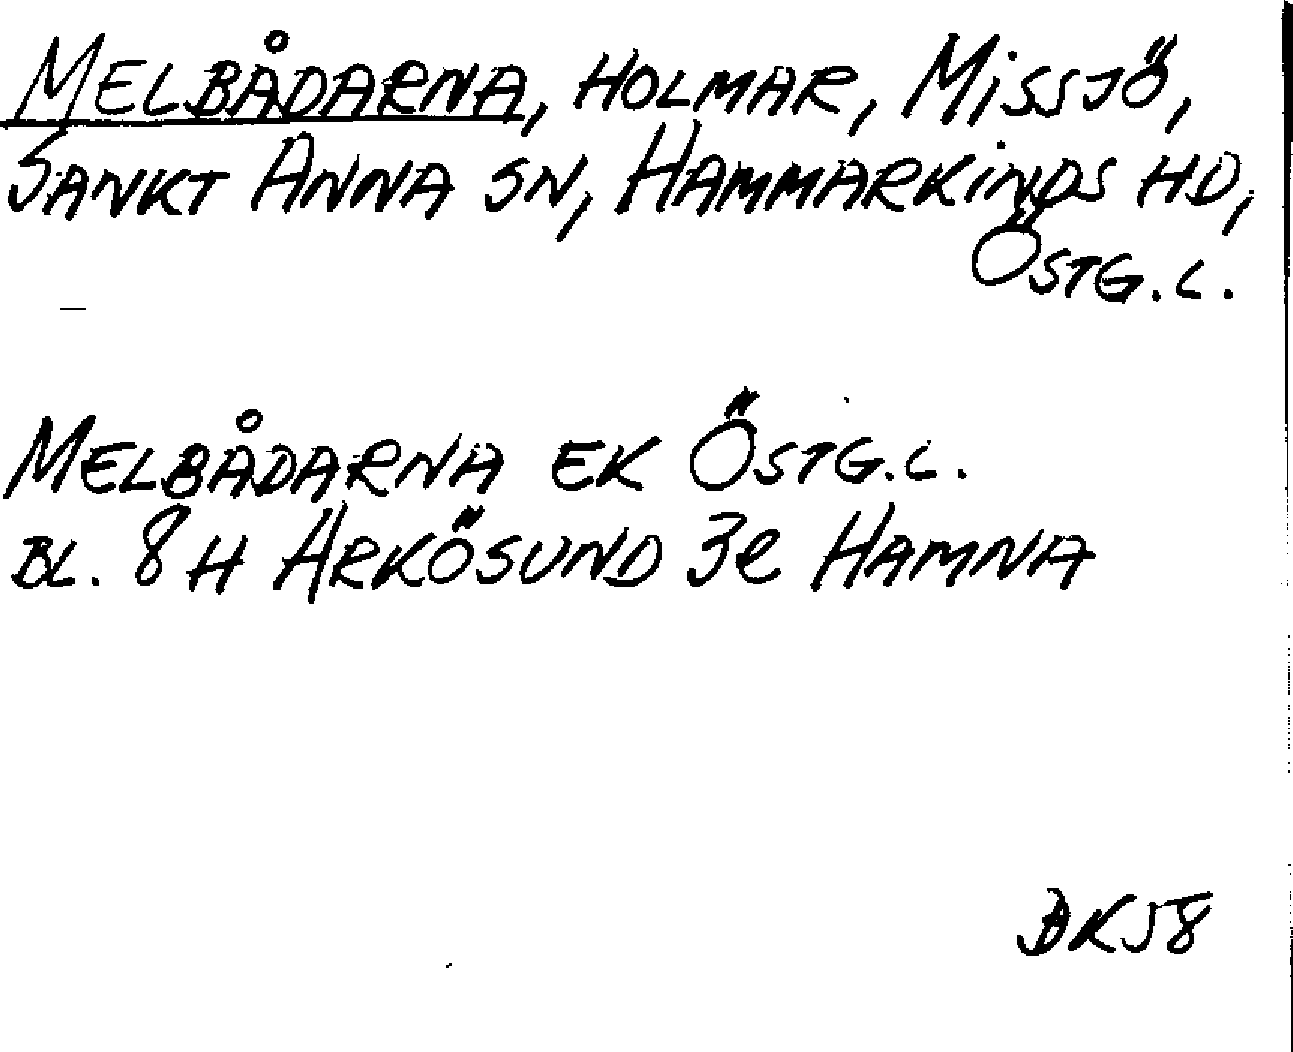 MELBÅDARNA, HOLMAR, MISSJÖ,
SANKT ANNA SN, HAMMARKINDS HD,
ÖSTG.L.
MELBÅDARNA EK ÖSTG.L.
BL. 8H ARKÖSUND 3e HAMNA